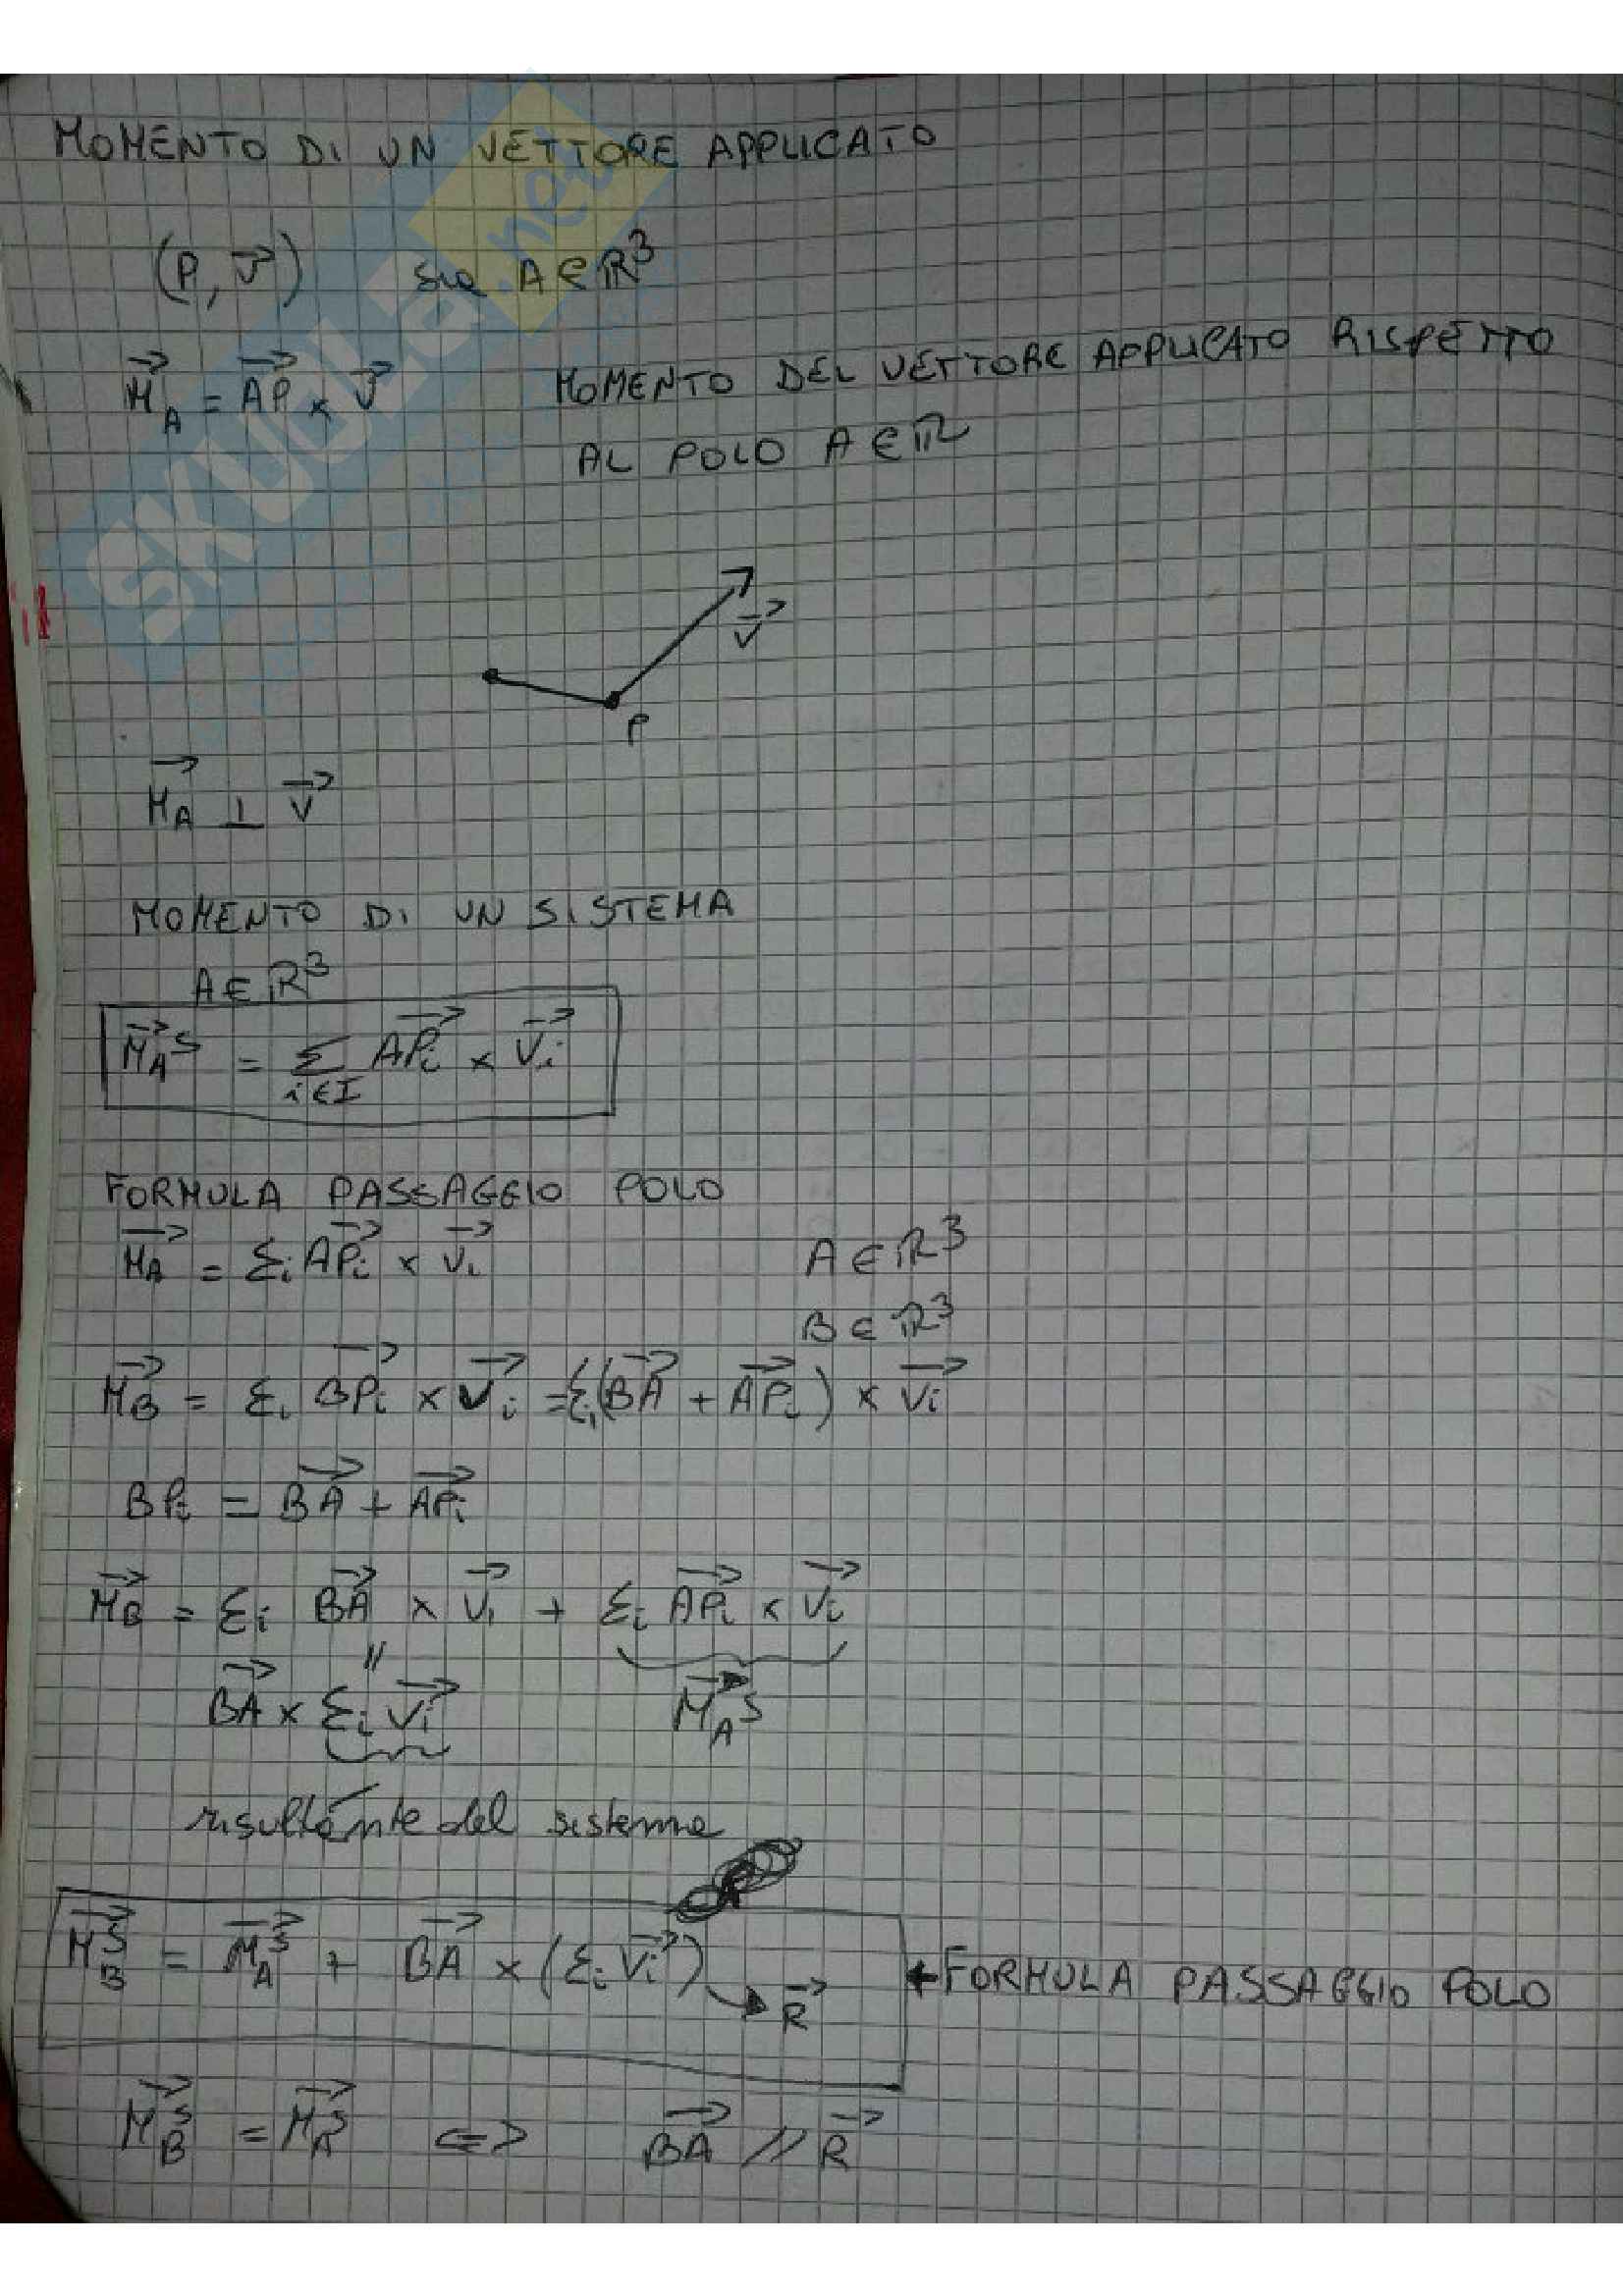 MOMENTO DI UN VETTORE APPLICATO
(P, v⃗) sia A ∈ ℝ³
M⃗_A = AP⃗ × v⃗ MOMENTO DEL VETTORE APPLICATO RISPETTO
AL POLO A ∈ ℝ
SKUOLA.net
v⃗
P
M⃗_A ⊥ v⃗
MOMENTO DI UN SISTEMA
A ∈ ℝ³
M⃗_A^S = Σ_{i∈I} AP⃗_i × v⃗_i
FORMULA PASSAGGIO POLO
M⃗_A = Σ_i AP⃗_i × v⃗_i A ∈ ℝ³
B ∈ ℝ³
M⃗_B = Σ_i BP⃗_i × v⃗_i = Σ_i (BA⃗ + AP⃗_i) × v⃗_i
BP_i = BA⃗ + AP⃗_i
M⃗_B = Σ_i BA⃗ × v⃗_i + Σ_i AP⃗_i × v⃗_i
"
BA⃗ × Σ_i v⃗_i M⃗_A^S
risultante del sistema
M⃗_B^S = M⃗_A^S + BA⃗ × (Σ_i v⃗_i) FORMULA PASSAGGIO POLO
R⃗
M⃗_B^S = M⃗_A^S <=> BA⃗ // R⃗